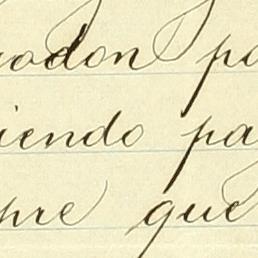 rodon pa
iendo pa
pre que